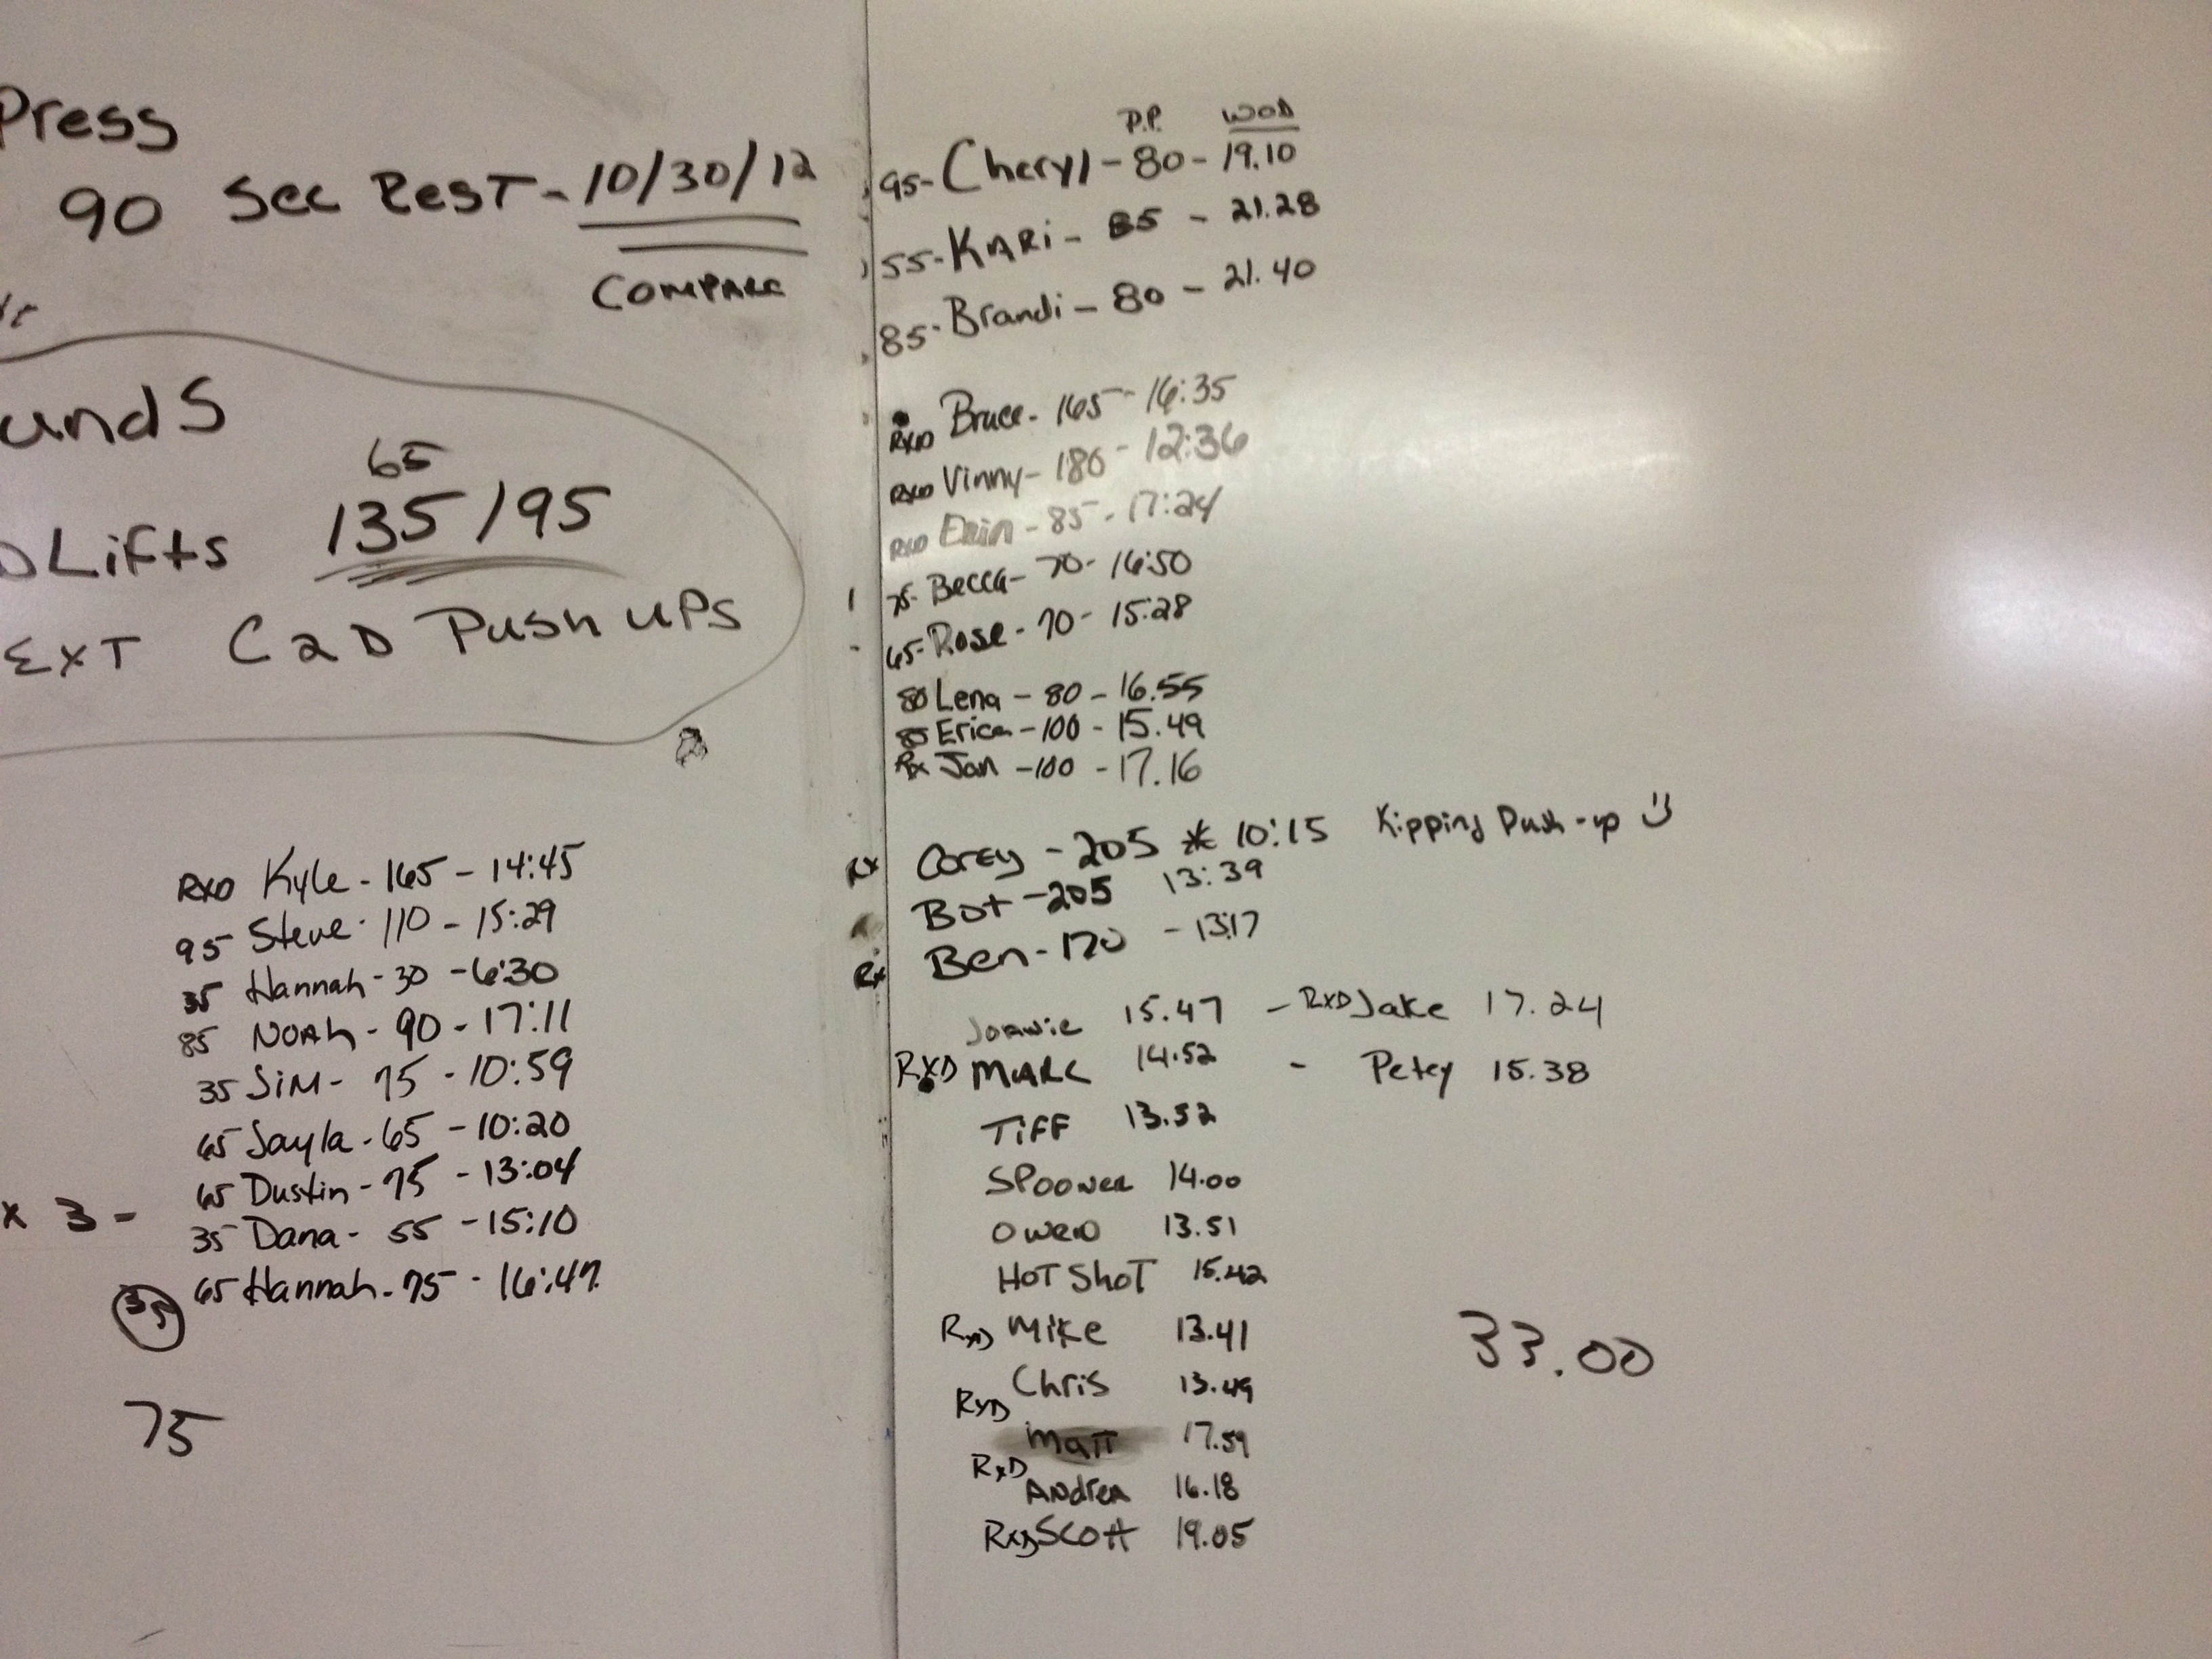 Press
90 Sec Rest - 10/30/12
Compare
unds
65
DLifts 135/95
Ext C2D Push ups
RXD Kyle - 165 - 14:45
95 Steve - 110 - 15:29
35 Hannah - 30 - 6:30
85 Noah - 90 - 17:11
35 Sim - 75 - 10:59
65 Jayla - 65 - 10:20
65 Dustin - 75 - 13:04
x 3 -
35 Dana - 55 - 15:10
65 Hannah - 75 - 16:47
35
75
P.P. WOD
95- Cheryl - 80 - 19.10
55- Kari - 85 - 21.28
85- Brandi - 80 - 21.40
RXD Bruce - 165 - 16:35
RXD Vinny - 180 - 12:36
RXD Erin - 85 - 17:24
75- Becca - 70 - 16:50
65- Rose - 70 - 15:28
80 Lena - 80 - 16.55
85 Erica - 100 - 15.49
Rx Jan - 100 - 17.16
Rx Corey - 205 * 10:15 Kipping Push-up
Bot - 205 13:39
Rx Ben - 170 - 13:17
15.47 - RXD Jake 17.24
RXD Marc 14.52 - Petey 15.38
Tiff 13.52
Spooner 14.00
Owen 13.51
Hot Shot 15.42
RXD Mike 13.41
Chris 13.49
RXD
Matt 17.59
RXD
Andrea 16.18
RXD Scott 19.05
33.00